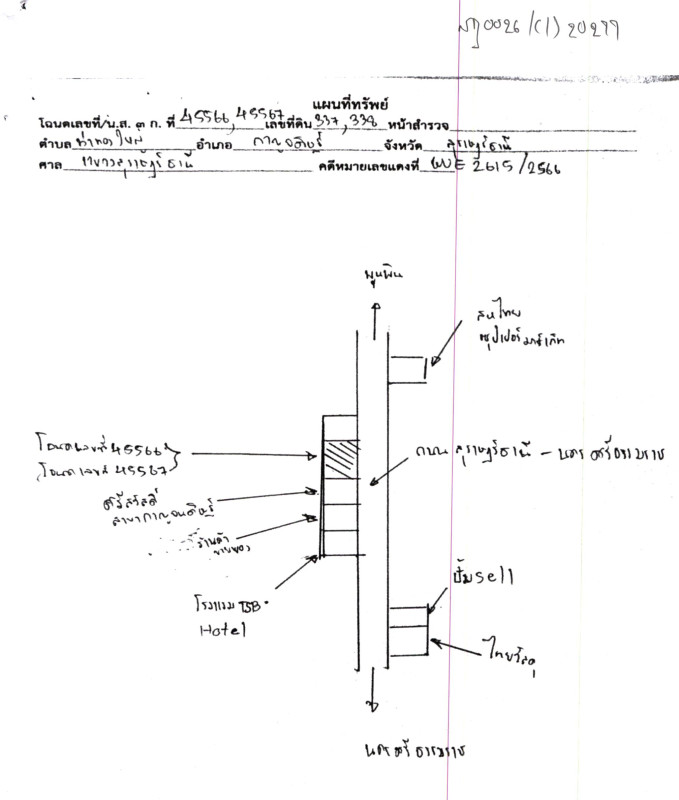 สฎ0026/(1) 20299
แผนที่ทรัพย์
โฉนดเลขที่/น.ส. ๓ ก. ที่ 45566, 45567 เลขที่ดิน 337, 338 หน้าสำรวจ
ตำบล ท่าทองใหม่ อำเภอ กาญจนดิษฐ์ จังหวัด สุราษฎร์ธานี
ศาล แขวงสุราษฎร์ธานี คดีหมายเลขแดงที่ ผบE 2615/2566
พุนพิน
สหไทย
ซุปเปอร์มาร์เก็ท
โฉนดเลขที่ 45566
โฉนดเลขที่ 45567
ถนน สุราษฎร์ธานี - นครศรีธรรมราช
ศรีสวัสดิ์
สาขากาญจนดิษฐ์
ร้านค้า
โรงแรม TSB.
Hotel
ปั้มsell
ไทยวัสดุ
นครศรีธรรมราช